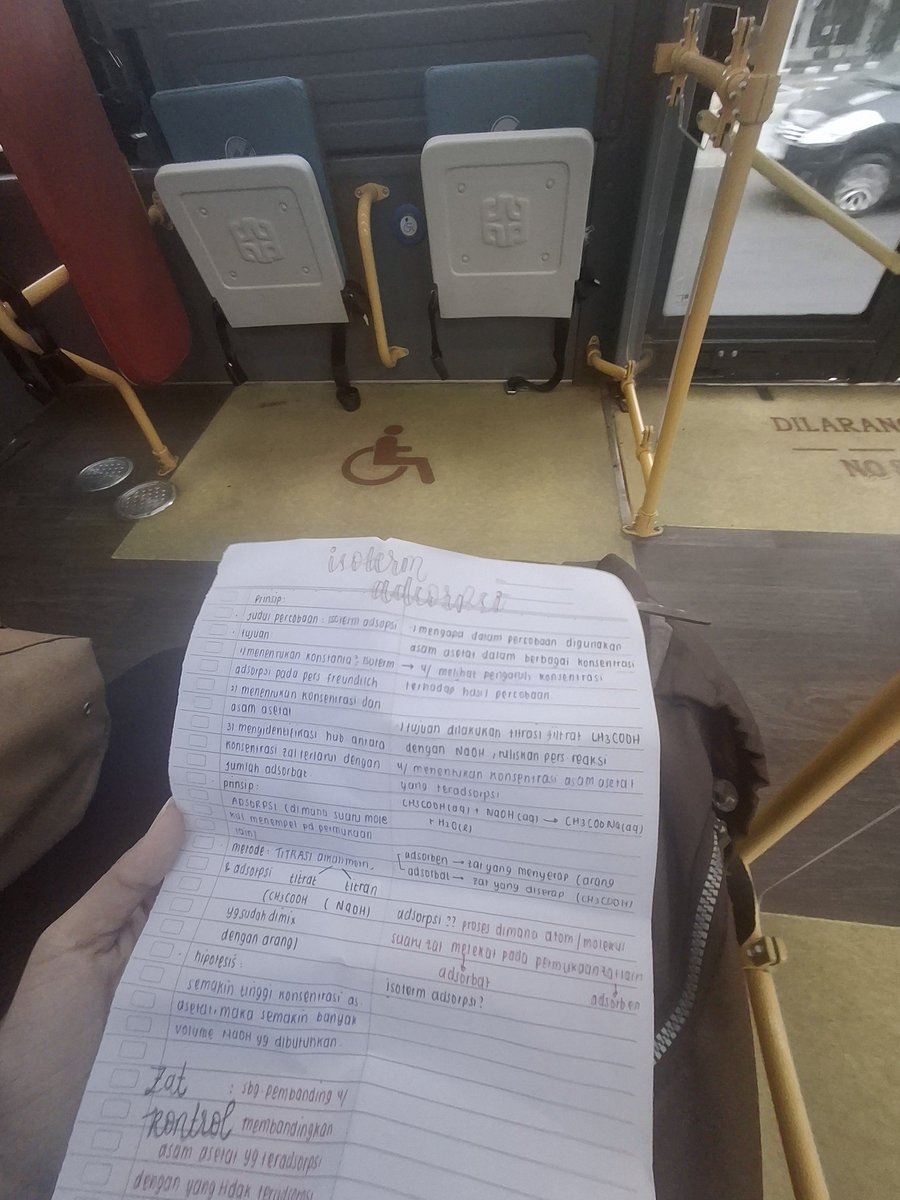 DILARANG
NO
isoterm
adsorpsi
prinsip:
· Judul percobaan : isoterm adsopsi
· tujuan
1) menentukan konstanta² isoterm
adsorpsi pada pers freundlich
2) menentukan konsentrasi dan
asam asetat
3) mengidentifikasi hub antara
konsentrasi zat terlarut dengan
jumlah adsorbat
prinsip:
ADSORPSI (dimana suatu mole
kul menempel pd permukaan
lain)
· metode: TITRASI alkalimetri,
& adsorpsi
titrat titran
(CH3COOH (NaOH)
yg sudah dimix
dengan arang)
· hipotesis:
semakin tinggi konsentrasi as.
asetat, maka semakin banyak
volume NaOH yg dibutuhkan.
zat : sbg pembanding u/
kontrol membandingkan
asam asetat yg teradsorpsi
dengan yang tidak teradsorpsi
·) mengapa dalam percobaan digunakan
asam asetat dalam berbagai konsentrasi
→ u/ melihat pengaruh konsentrasi
terhadap hasil percobaan
·) tujuan dilakukan titrasi filtrat CH3COOH
dengan NaOH, tuliskan pers reaksi
u/ menentukan konsentrasi asam asetat
yang teradsorpsi
CH3COOH(aq) + NaOH(aq) → CH3COONa(aq)
+ H2O(l)
adsorben → zat yang menyerap (arang
adsorbat → zat yang diserap (CH3COOH)
adsorpsi ?? proses dimana atom/molekul
suatu zat melekat pada permukaan zat lain
adsorbat
adsorben
isoterm adsorpsi?